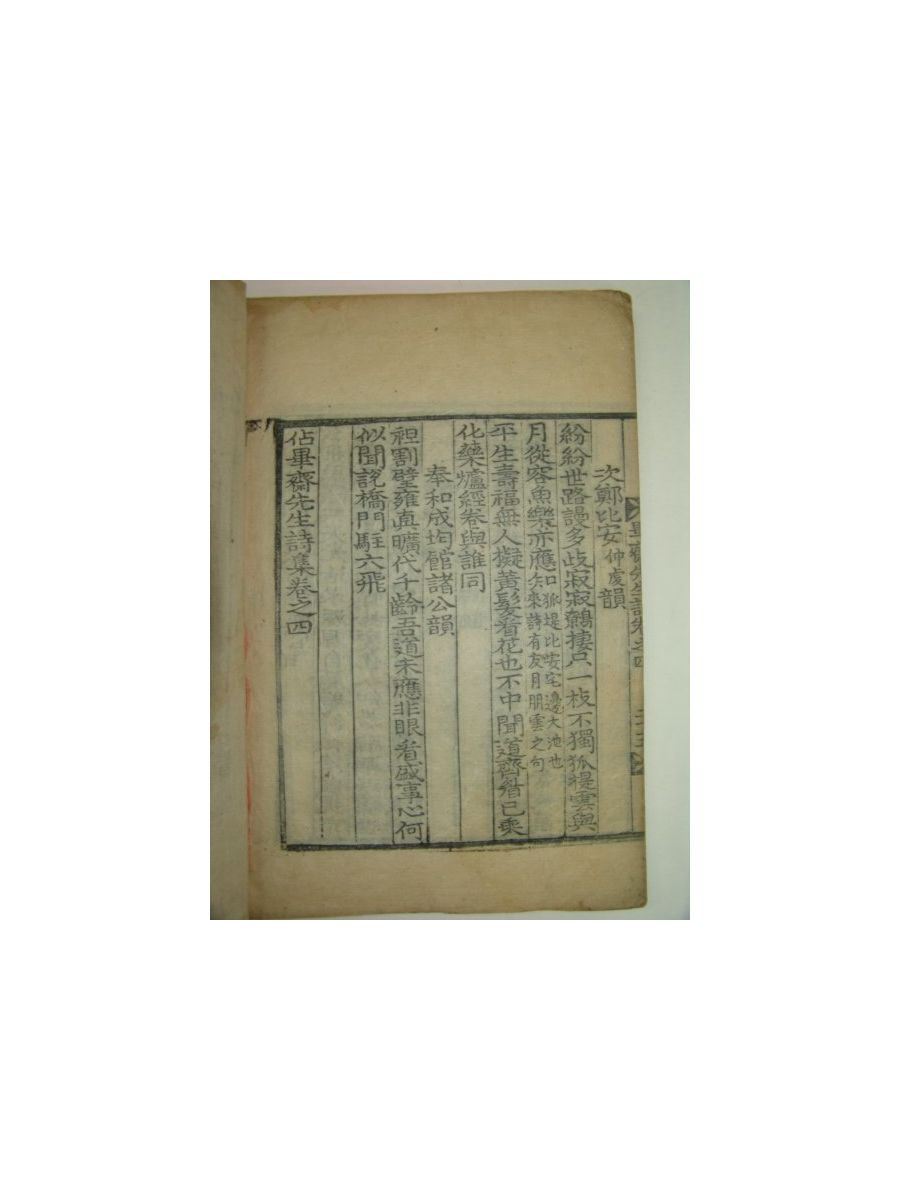 次鄭比安仲虔韻
紛紛世路謾多歧寂寂鷦捿只一枝不獨狐堤雲與
月從容魚樂亦應知狐堤比安宅邊大池也來詩有友月朋雲之句
平生壽福無人擬黃髮看花也不中聞道齊諧已乘
化藥爐經卷與誰同
奉和成均館諸公韻
袒割璧雍眞曠代千齡吾道未應非眼看盛事心何
似聞說橋門駐六飛
佔畢齋先生詩集卷之四